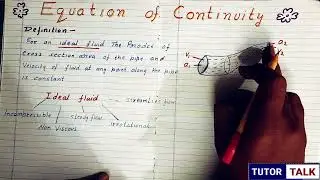 Equation of Continuity
Definition-
For an ideal fluid The Product of
Cross section area of the pipe and
Velocity of fluid at any point along the pipe
is constant
Ideal fluid
Streamline flow
Incompressible
steady flow
irrotational
Non Viscous
V₁
a₁
a₂
TUTOR TALK